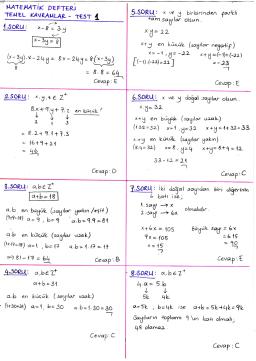 MATEMATİK DEFTERİ
TEMEL KAVRAMLAR - TEST 1
1.SORU: x-8=3y
x-3y=8
(x-3y).x-24y = 8x-24y = 8(x-3y)
= 8.8 = 64
Cevap: E
2.SORU: x,y,z ∈ Z⁺
8x+9y+7z en küçük?
= 8.2+9.1+7.3
= 16+9+21
= 46
Cevap: D
3.SORU: a,b ∈ Z⁺
a+b=18
a.b en büyük
a=9, b=9 a.b=9.9=81
a.b en küçük (sayılar uzak)
(1+17=18) a=1, b=17 a.b=1.17=17
⇒ 81-17=64 Cevap: B
4.SORU: a,b ∈ Z⁺
a+b=31
a.b en küçük (sayılar uzak)
(1+30=31) a=1, b=30 a.b=1.30=30
Cevap: C
5.SORU: x ve y birbirinden farklı
tam sayılar olsun.
x.y=22
x+y en küçük (sayılar negatif)
x=-1, y=-22
=-23
Cevap: E
6.SORU: x ve y doğal sayılar olsun.
x.y=32
x+y en büyük (sayılar uzak)
(1.32=32) x=1, y=32 x+y=1+32=33
x+y en küçük (sayılar yakın)
(8.4=32) x=8, y=4 x+y=8+4=12
33-12=21
Cevap: C
7.SORU: İki doğal sayıdan biri diğerinin
6 katı ise,
1.sayı → x
2.sayı → 6x olmalıdır.
x+6x=105
7x=105
x=15
Büyük sayı = 6x
=6.15
=90
Cevap: E
8.SORU: a,b ∈ Z⁺
4.a=5.b
5k 4k
a=5k, b=4k ise a+b=5k+4k=9k
Sayıların toplamı 9'un katı olmalı,
48 olamaz
Cevap: C